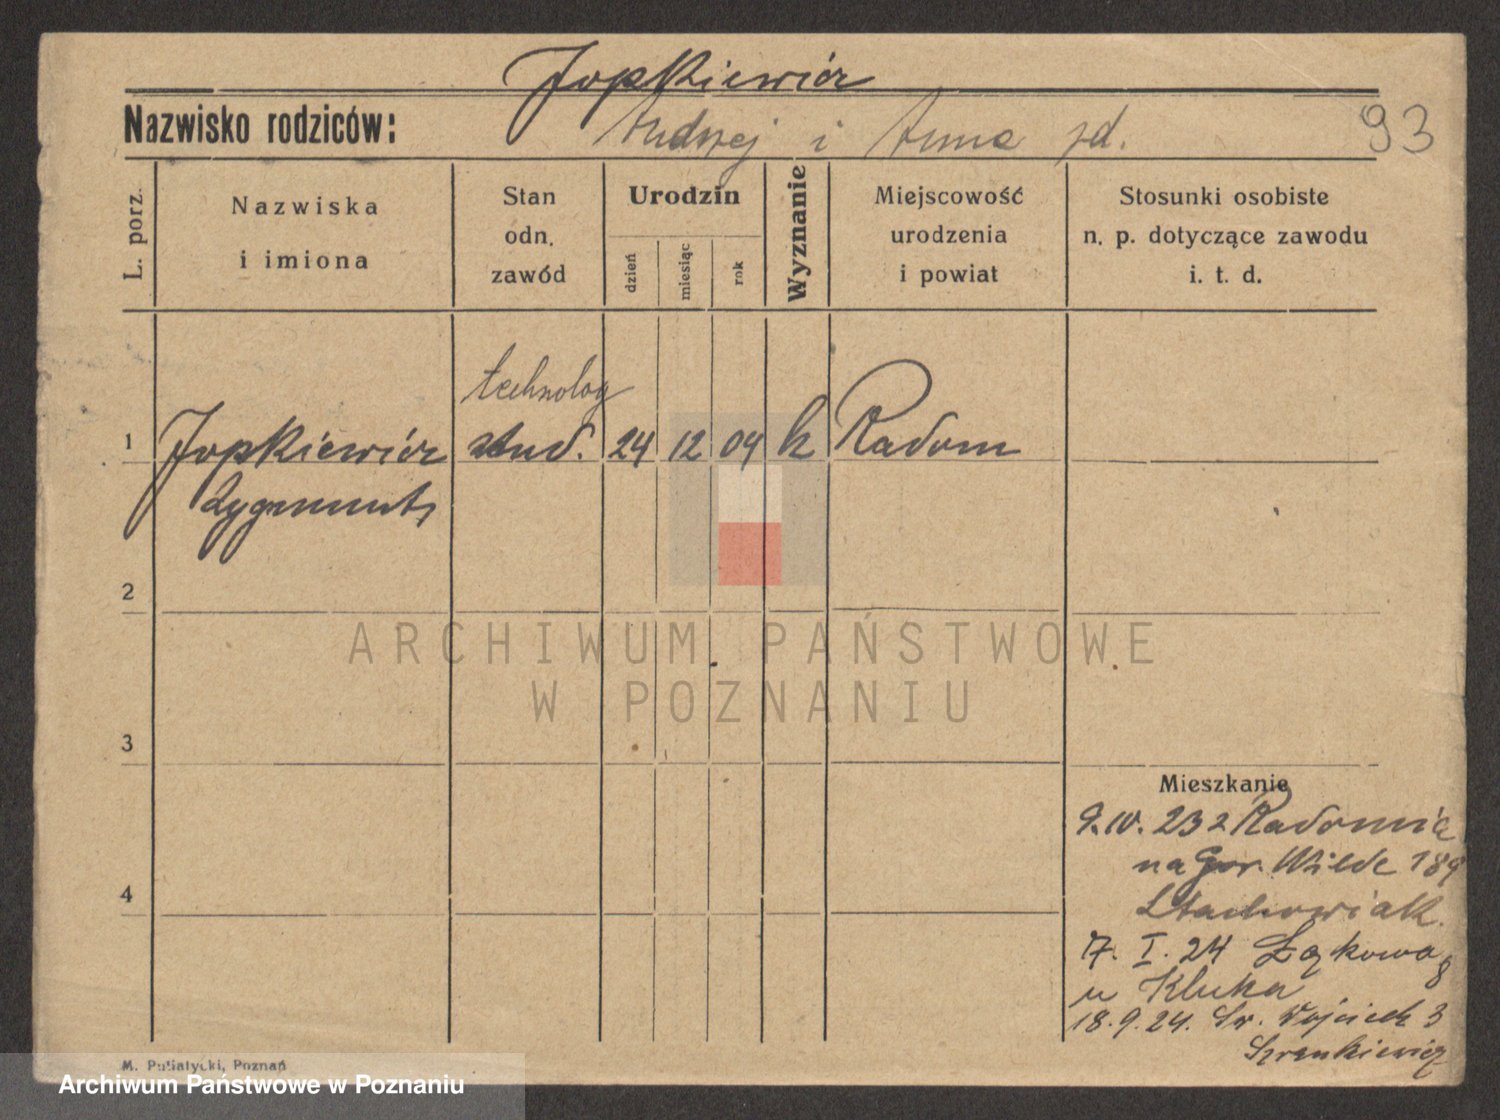 Jopkiewicz
Nazwisko rodziców: Andrzej i Anna zd.
93
L. porz.
Nazwiska
i imiona
Stan
odn.
zawód
Urodzin
dzień
miesiąc
rok
Wyznanie
Miejscowość
urodzenia
i powiat
Stosunki osobiste
n. p. dotyczące zawodu
i. t. d.
technolog
1 Jopkiewicz stud. 24 12 04 k Radom
Zygmunt
2
ARCHIWUM PAŃSTWOWE
W POZNANIU
3
Mieszkanie
9.IV.23 z Radomia
na Gór. Wilde 189
Stachowiak
4
7. I. 24 Łąkowa 8
u Kluka
18.9.24. Św. Wojciech 3
Szrenkiewicz
M. Putiatycki, Poznań
Archiwum Państwowe w Poznaniu